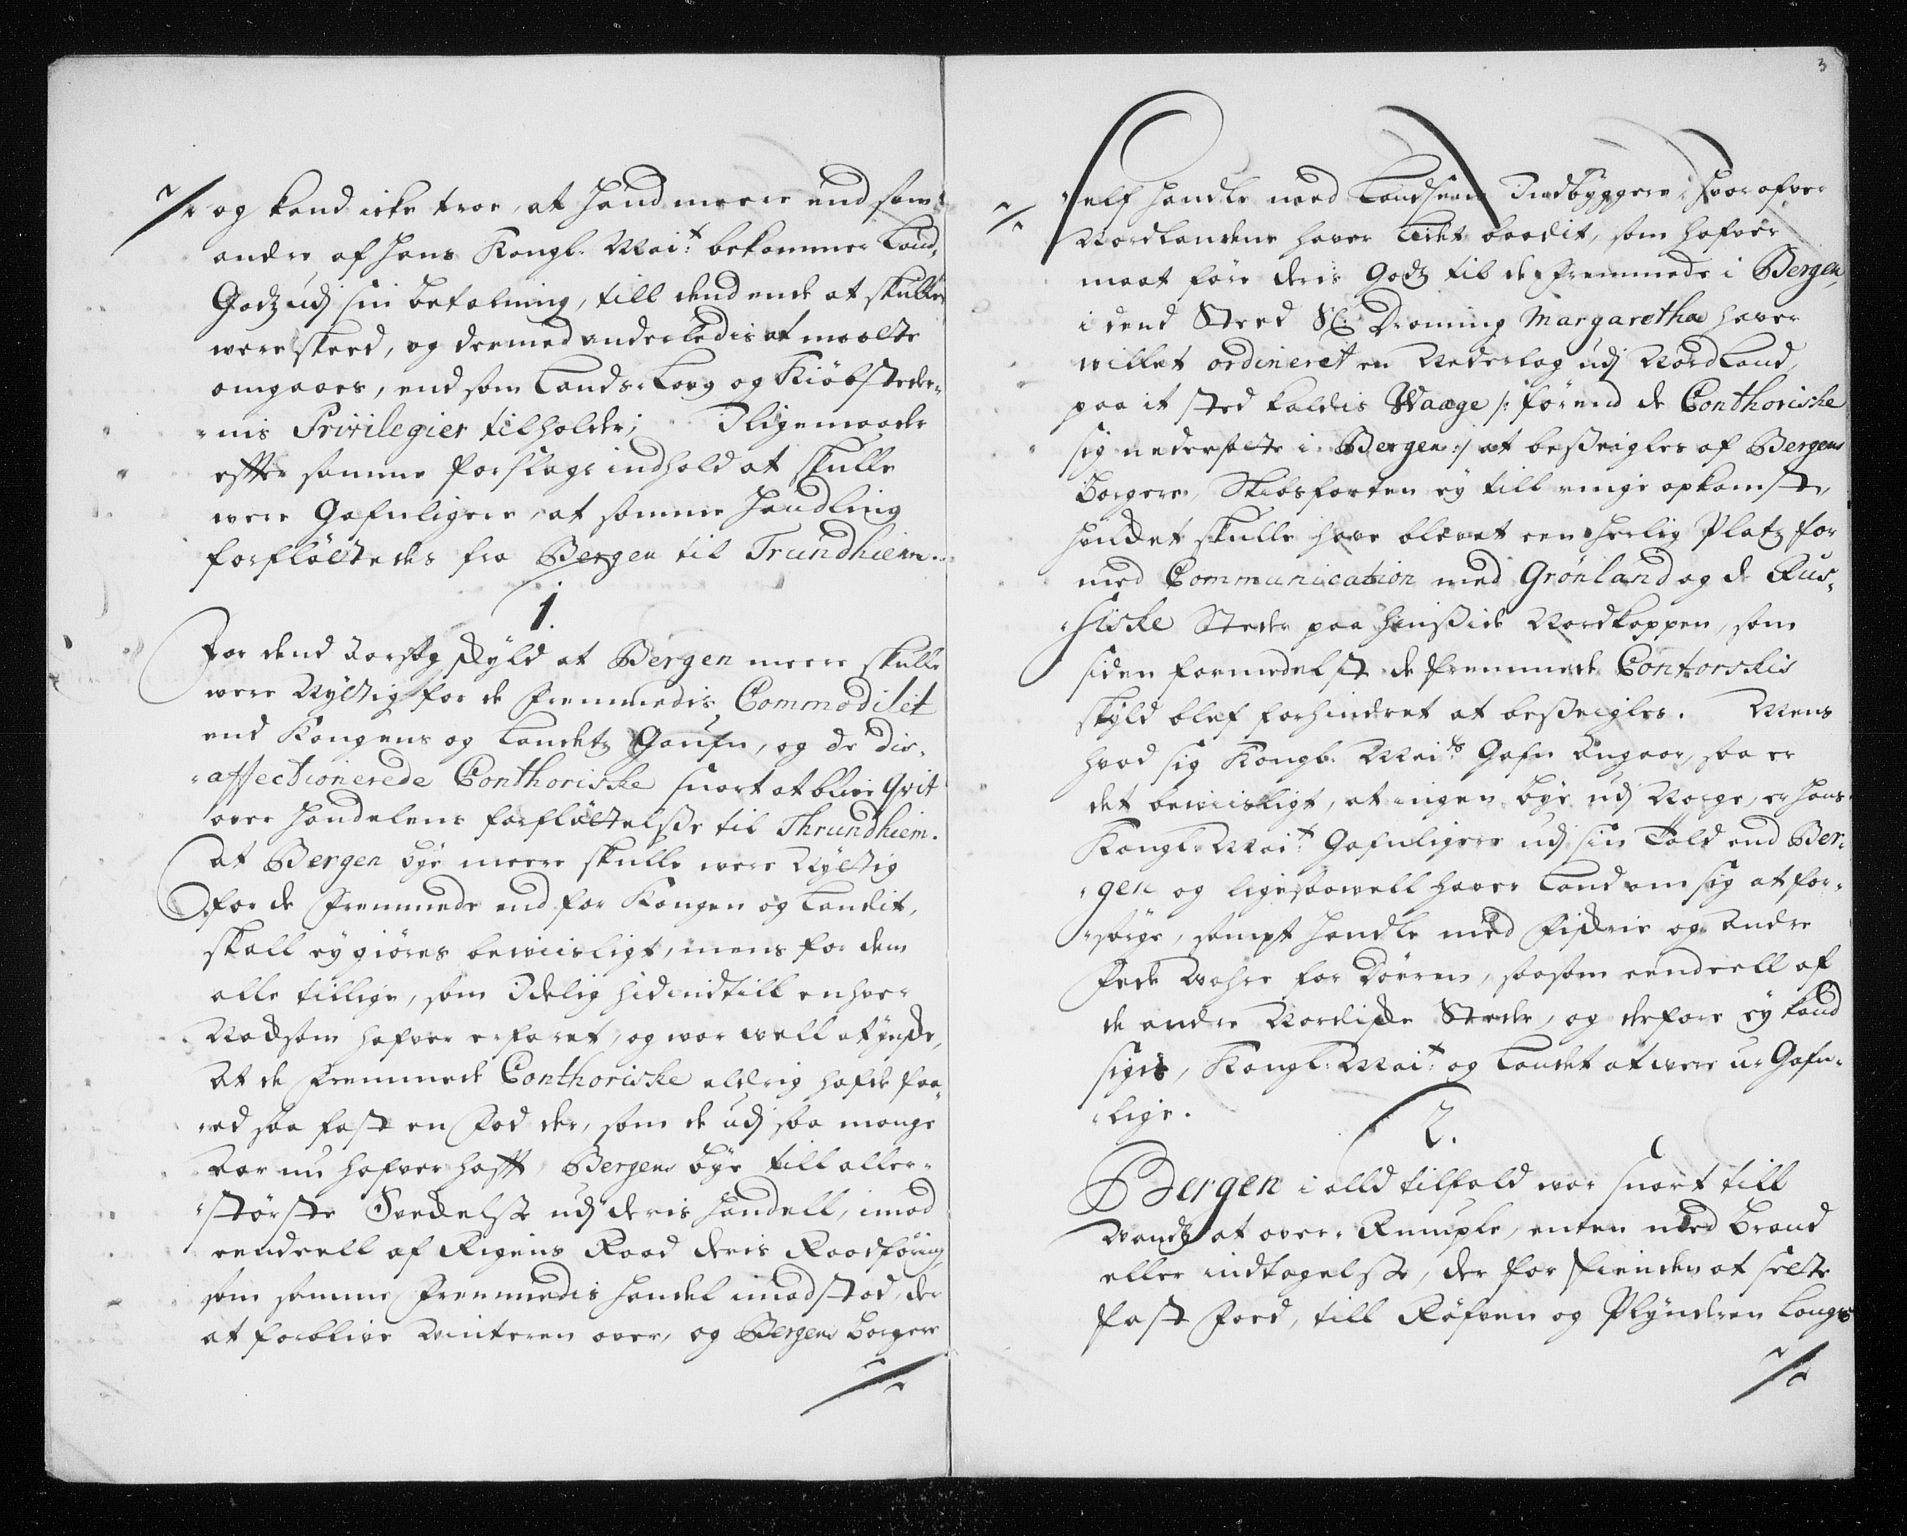 og kand icke troe, at hand meere end som
andre af hans Kongl. Mai.t bekommer Land-
Godz udj sin betalning, till dend ende at skulle
were skeed, og dermed anderledis at maatte
omgaaes, end som Lands-Laug og Kiøbsteder-
nis Privilegier tilholder; Iligemaade
effter samme forslags indhold at skulle
were Gafnligere, at samme handling
forfløttedes fra Bergen til Trundhiem.
1.
For dend aarsag skyld at Bergen meere skulle
were Nyttig for de Fremmedis Commoditet
end Kongens og Landetz Gaufn, og de dis-
affectionerede Conthoriske snart at blive qvit
over handelens forfløttelsse til Thrundhiem.
At Bergen bye meere skulle were Nyttig
for de Fremmede end for Kongen og Landit,
skall ey giøres bewiisligt, mens for dem
alle tillige, som Idelig hid indtill enhver
Nation hafver erfaret, og vor well at ynske,
At de Fremmede Conthoriske aldrig hafde faa-
ed saa fast en Fod der, som de udj saa mange
Aar nu hafver hafft, Bergens bye till aller-
største Svechelse udj deris handell, imod
eendeell af Rigens Raad deris Raadføring,
som samme Fremmedis handel imodstod, der
at forblive Winteren over, og Bergens borgere
3
self handle med Landsens Indbyggere, hvorofver
Nordlandene haver Lidet baadit, som hafver
maat føre deris Godz til de Fremmede i Bergen,
i dend Sted Sl. Droning Margaretha haver
willet ordineret en Nederlag udj Nordland,
paa it sted kaldis Waage /: førend de Conthoriske
sig nedersatte i Bergen :/ at besseigles af Bergens
borgere, Skibsfarten ey till ringe opkomst,
hvilchet skulle have blevet een herlig Platz for
med Communication med Grønland og de Rus-
siske Steder paa hinsiden Nordkappen, som
siden formedelst de fremmede Contorskis
skyld blef forhindret at besseigles. Mens
hvad sig Kongl. Mai.ts Gafn angaar, saa er
det bewiisligt, at ingen bye udj Norge, er hans
Kongl. Mai.t Gafnligere udj sin Told end Ber-
gen og ligesaawell haver Land om sig at for-
sørge, sampt handle med Fischerie og andre
Fede Wahre for Døeren, saasom eendeell af
de andre Nordiske Steder, og derfore ey kand
sigis, Kongl. Mai.t og Landet at were u-Gafn-
lige.
2.
Bergen i alld tilfald var snart till
Vandz at over-Rumple, enten med brand
eller indtagelsse, der for Fienden at sette
fast Foed, till Røfven og Plyndren langs